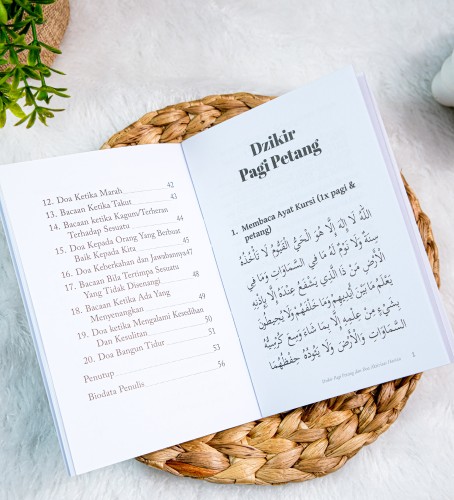 12. Doa Ketika Marah 42
13. Bacaan Ketika Takut 43
14. Bacaan ketika Kagum/Terheran
Terhadap Sesuatu 44
15. Doa Kepada Orang Yang Berbuat
Baik Kepada Kita 45
16. Doa Keberkahan dan Jawabannya 47
17. Bacaan Bila Tertimpa Sesuatu
Yang Tidak Disenangi 48
18. Bacaan Ketika Ada Yang
Menyenangkan 49
19. Doa ketika Mengalami Kesedihan
Dan Kesulitan 50
20. Doa Bangun Tidur 51
Penutup 53
Biodata Penulis 56
Dzikir
Pagi Petang
1. Membaca Ayat Kursi (1x pagi &
petang)
اللَّهُ لَا إِلَهَ إِلَّا هُوَ الْحَيُّ الْقَيُّومُ لَا تَأْخُذُهُ
سِنَةٌ وَلَا نَوْمٌ لَهُ مَا فِي السَّمَاوَاتِ وَمَا فِي
الْأَرْضِ مَنْ ذَا الَّذِي يَشْفَعُ عِنْدَهُ إِلَّا بِإِذْنِهِ
يَعْلَمُ مَا بَيْنَ أَيْدِيهِمْ وَمَا خَلْفَهُمْ وَلَا يُحِيطُونَ
بِشَيْءٍ مِنْ عِلْمِهِ إِلَّا بِمَا شَاءَ وَسِعَ كُرْسِيُّهُ
السَّمَاوَاتِ وَالْأَرْضَ وَلَا يَئُودُهُ حِفْظُهُمَا
Dzikir Pagi Petang dan Doa Doa